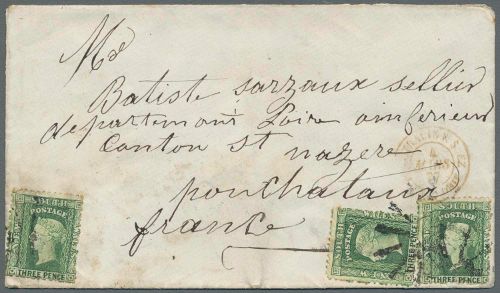 Mde
Batiste sarzaux sellier
departemont Loire inferieur
Canton st nazere
ponchataux
france
SOUTH
POSTAGE
THREE PENCE
SOUTH
POSTAGE
THREE PENCE
SOUTH
POSTAGE
THREE PENCE